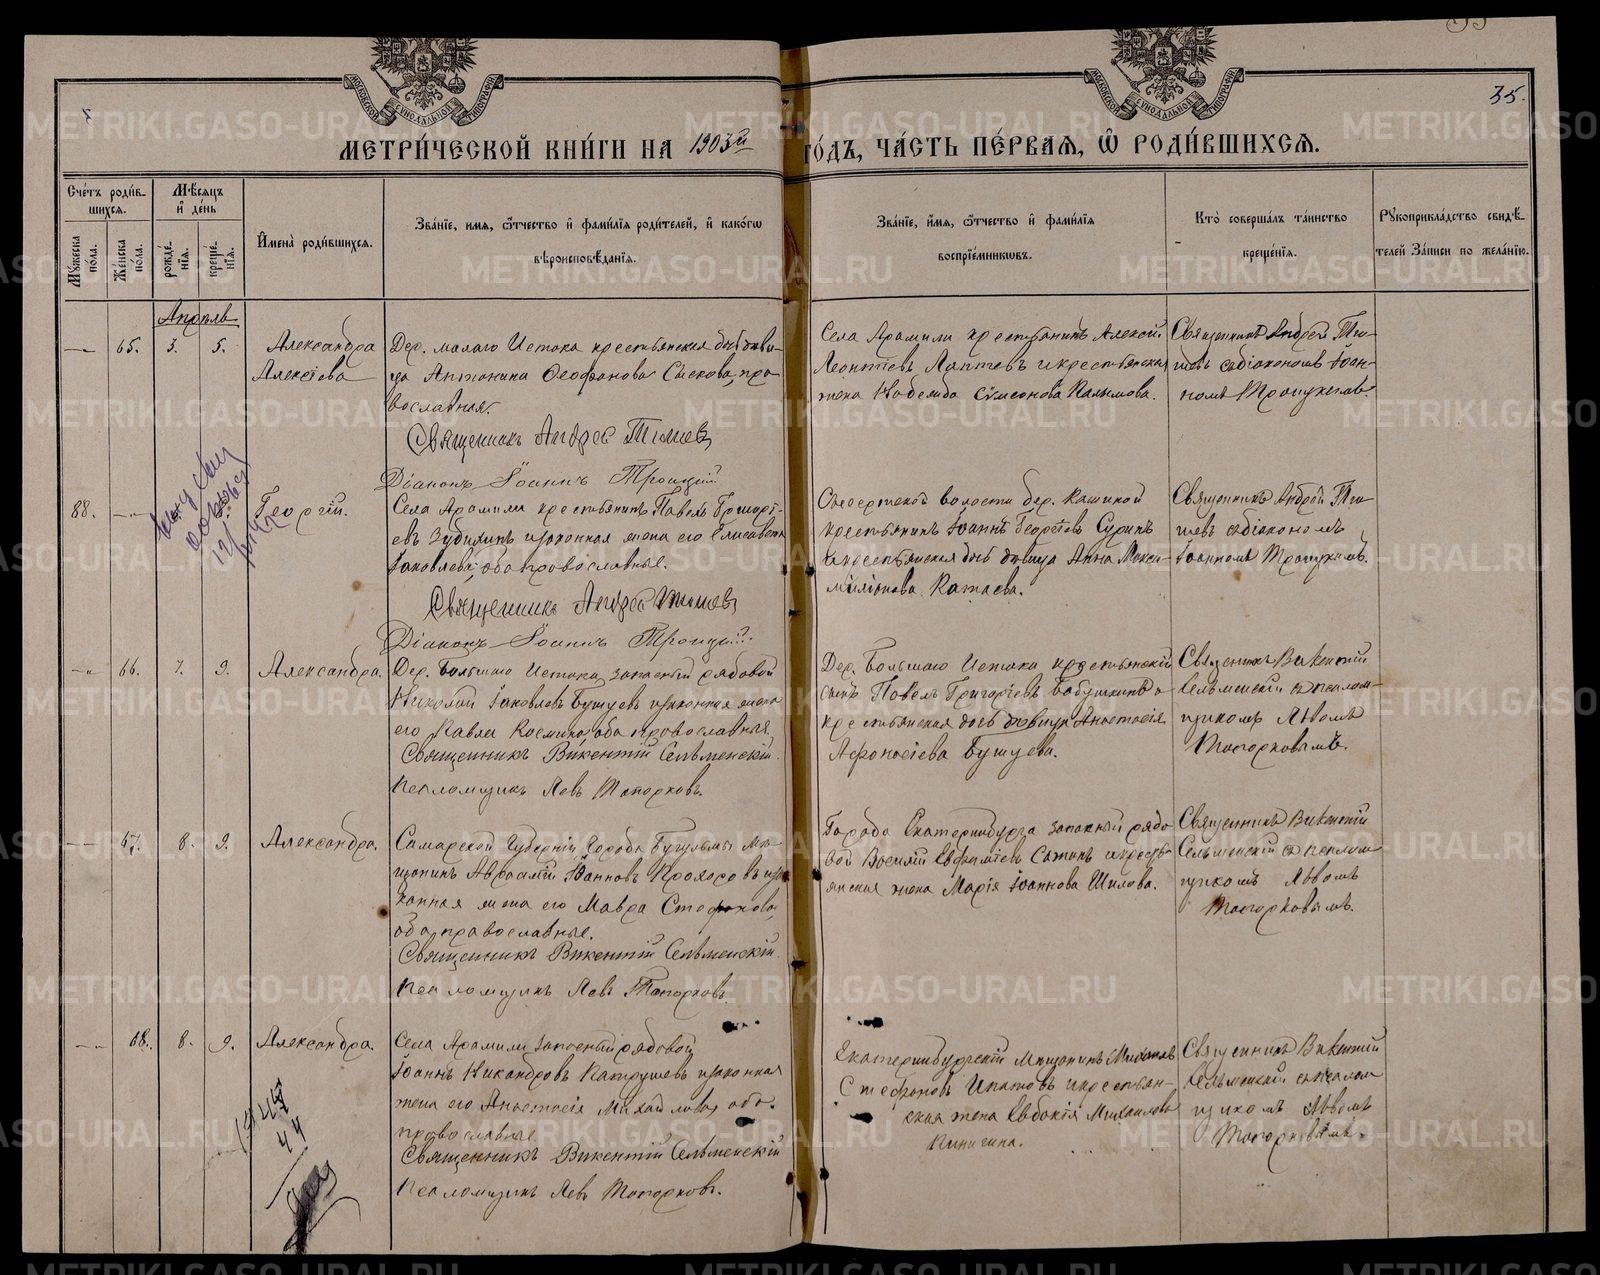 35.
МЕТРИ́ЧЕСКОЙ КНИ́ГИ НА 1903й ГО́ДЪ, ЧА́СТЬ ПЕ́РВАЯ, Ѽ РОДИ́ВШИХСЯ.
Счéтъ роди́вшихся.
Мѣ́сяцъ и де́нь
Мꙋ́жеска пола.
Же́нска пола.
рожде́нїя.
креще́нїя.
Имена̀ роди́вшихся.
Зва́нїе, имя, ѻтчество и фами́лїя роди́телей, и како́гѡ
вѣроисповѣ́данїя.
Зва́нїе, имя, ѻтчество и фами́лїя
воспрїе́мникѡвъ.
Кто̀ соверша́лъ та́инство
креще́нїя.
Рꙋкоприкла́дство свидѣ́-
телей за́писи по жела́нїю.
Апрѣль
65. 3. 5.
Александра
Алексіева
Дер. малаго Истока крестьянская дочь дѣви-
ца Антонина Ѳеофанова Сыскова, пра-
вославная.
Священникъ Андрей Тишевъ
Діаконъ Іоаннъ Троицкій
Села Арамили крестьянинъ Алексій
Леонтіевъ Лаптевъ и крестьянская
жена Надежда Сѵмеонова
Священникъ Андрей Ти-
шевъ съ діакономъ Іоан-
номъ Троицкимъ.
88.
Георгій.
Села Арамили крестьянинъ Павелъ Григорі-
евъ и законная жена его Елисавета
Іаковлева, оба православные.
Священникъ Андрей Тишевъ
Діаконъ Іоаннъ Троицкій
Сысертской волости дер. Кашиной
крестьянинъ Іоаннъ Георгіевъ Суринъ
и крестьянская дочь дѣвица Анна Макси-
миліанова Катаева.
Священникъ Андрей Ти-
шевъ съ діакономъ
Іоанномъ Троицкимъ.
66. 7. 9.
Александра.
Дер. Большаго Истока запасный рядовой
Николай Іаковлевъ Бушуевъ и законная жена
его Павла Космина, оба православные.
Священникъ Викентій Сельменскій
Псаломщикъ Левъ Топорковъ.
Дер. Большаго Истока крестьянскій
сынъ Павелъ Григоріевъ Бабушкинъ и
крестьянская дочь дѣвица Анастасія
Аѳанасіева Бушуева.
Священникъ Викентій
Сельменскій съ псалом-
щикомъ Львомъ
Топорковымъ.
67. 8. 9.
Александра.
Самарской Губерніи города Бугульмы мѣ-
щанинъ Авраамій Іоанновъ Прохоровъ и за-
конная жена его Мавра Стефанова,
оба православные.
Священникъ Викентій Сельменскій
Псаломщикъ Левъ Топорковъ
Города Екатеринбурга запасный рядо-
вой Василій Евфиміевъ и кресть-
янская жена Марія Іоаннова Шилова.
Священникъ Викентій
Сельменскій съ псалом-
щикомъ Львомъ
Топорковымъ.
68. 8. 9.
Александра.
Села Арамили запасный рядовой
Іоаннъ Никандровъ Патрушевъ и законная
жена его Анастасія Михаилова, оба
православные
Священникъ Викентій Сельменскій
Псаломщикъ Левъ Топорковъ.
Екатеринбургскій мѣщанинъ Михаилъ
Стефановъ Ипатовъ и крестьян-
ская жена Евдокія Михаилова
Священникъ Викентій
Сельменскій съ псалом-
щикомъ Львомъ
Топорковымъ.